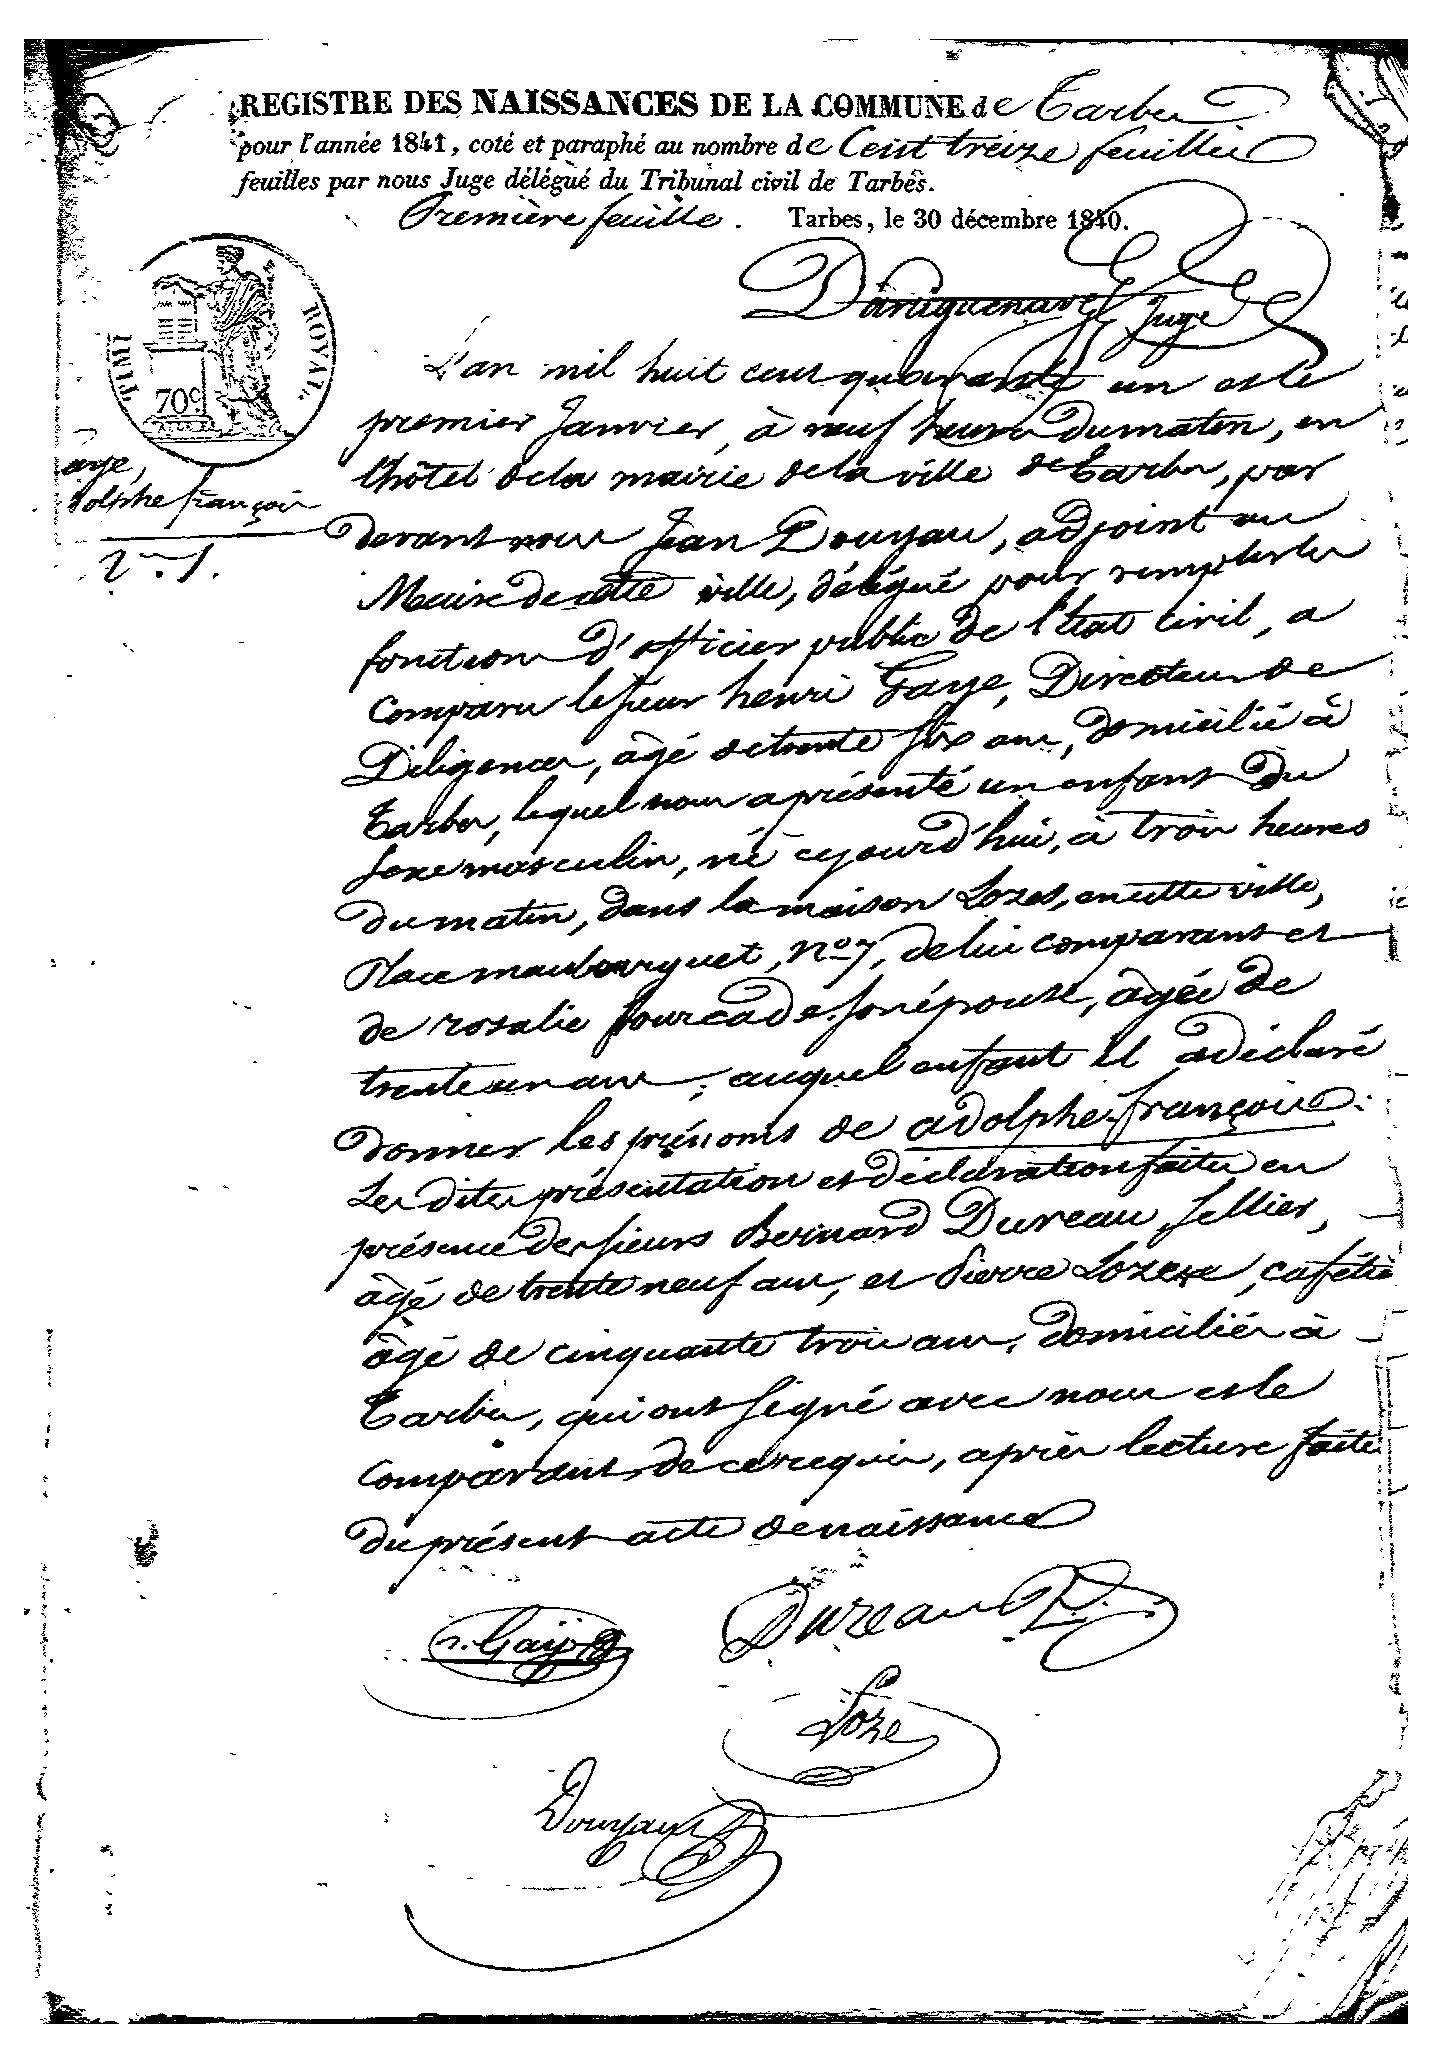 REGISTRE DES NAISSANCES DE LA COMMUNE de Tarbes
pour l'année 1841, coté et paraphé au nombre de Cent treize feuilles
feuilles par nous Juge délégué du Tribunal civil de Tarbes.
Première feuille. Tarbes, le 30 décembre 1840.
Juge
TIMB ROYAL
70c
L'an mil huit cent quarante un et le
premier Janvier, à neuf heures du matin, en
l'hôtel de la mairie de la ville de Tarbes, par
Gaye,
adolphe françois
devant nous Jean Douyau, adjoint au
n. 1.
Maire de cette ville, délégué pour remplir les
fonctions d'officier public de l'état civil, a
comparu le sieur henri Gaye, Directeur de
Diligences, âgé de trente six ans, domicilié à
Tarbes, lequel nous a présenté un enfant du
sexe masculin, né ce jourd'hui, à trois heures
du matin, dans la maison Lozes, en cette ville,
Place maubourguet, n.º 7, de lui comparant et
de rosalie fourcade son épouse, âgée de
trente un ans; auquel enfant il a déclaré
donner les prénoms de adolphe françois.
Les dites présentation et déclaration faites en
présence des sieurs Bernard Dureau, sellier,
âgé de trente neuf ans, et Pierre Loze, cafétier
âgé de cinquante trois ans, domiciliés à
Tarbes, qui ont signé avec nous et le
comparant, de ce requis, après lecture faite
du présent acte de naissance
h. Gaye Dureau
Loze
Douyau